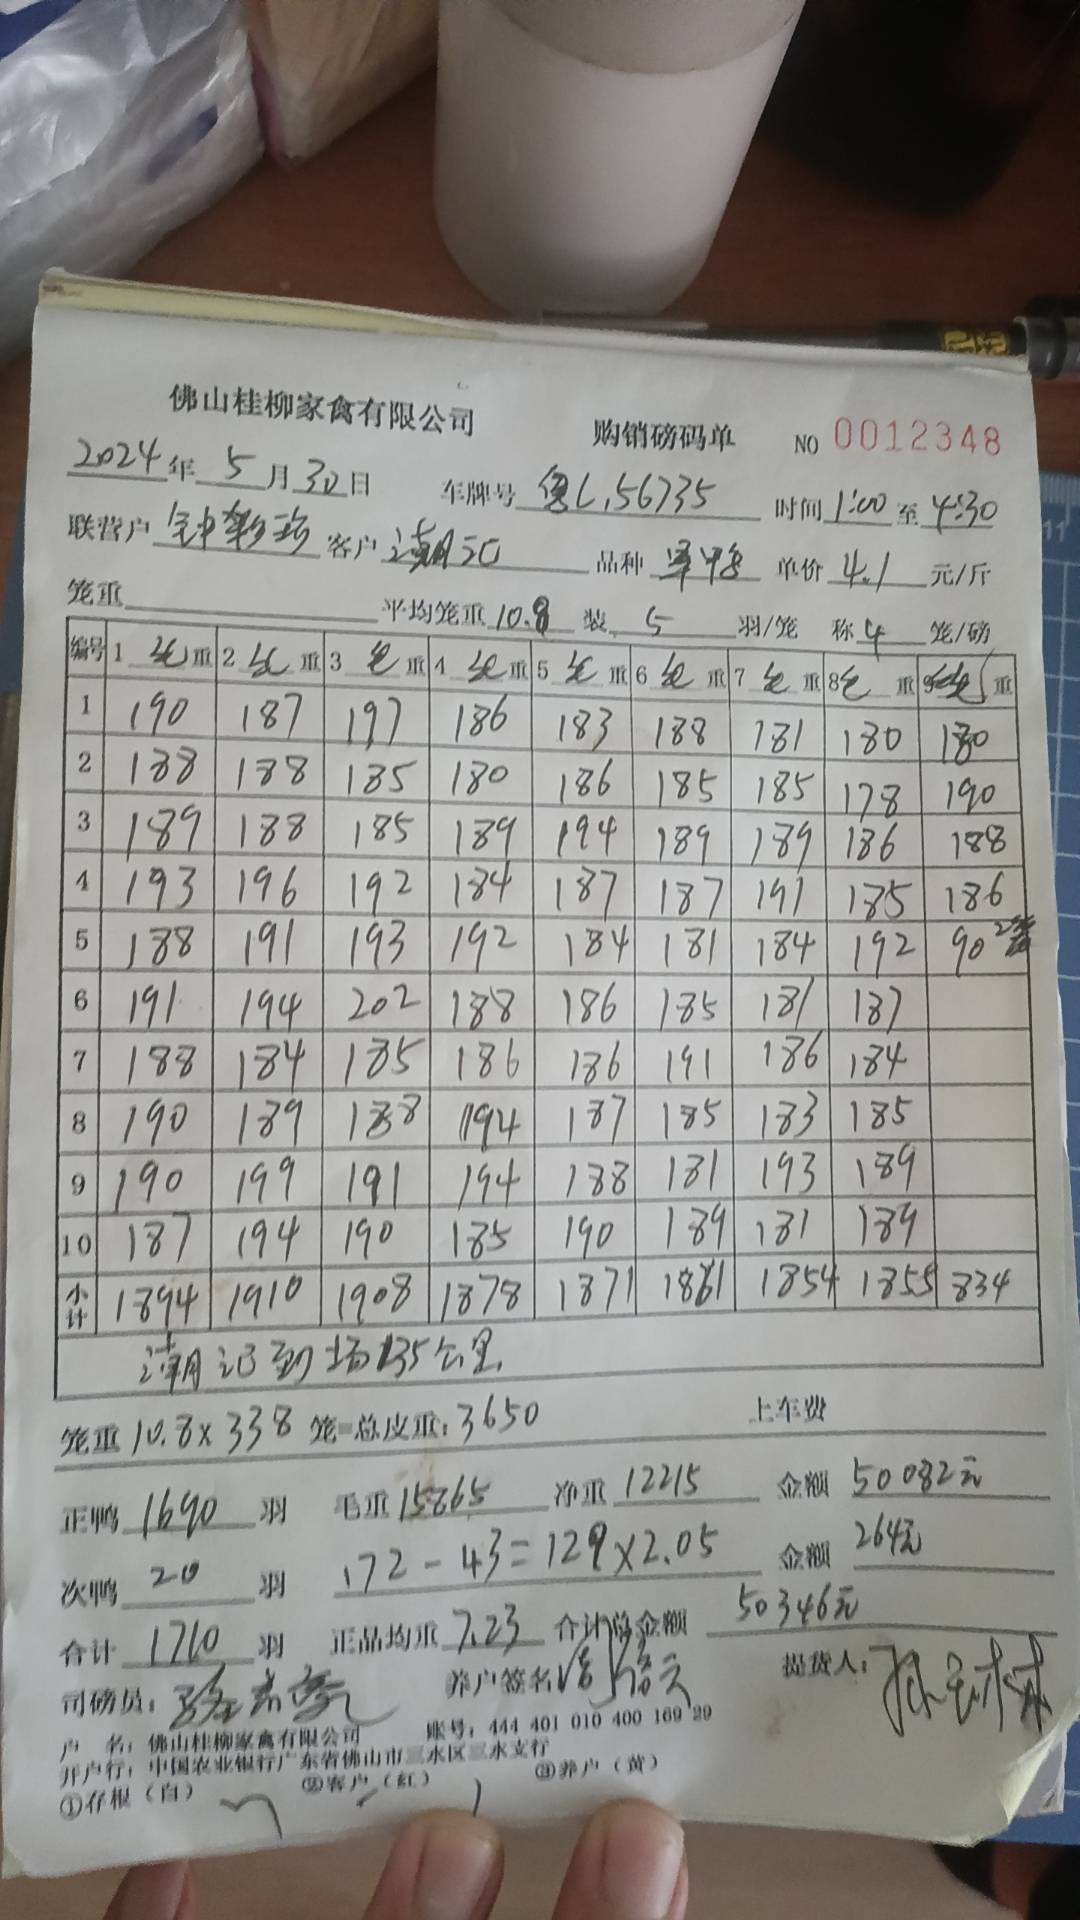 佛山桂柳家禽有限公司 购销磅码单 NO 0012348
2024年5月30日 车牌号 鲁L.56735 时间 1:00 至 4:30
联营户 钟彩珍 客户 潮记 品种 单价 4.1 元/斤
笼重 平均笼重 10.8 装 5 羽/笼 称 4 笼/磅
编号 1 毛重 2 毛重 3 毛重 4 毛重 5 毛重 6 毛重 7 毛重 8 毛重 9 毛重
1 190 187 197 186 183 188 181 180 180
2 188 188 185 180 186 185 185 178 190
3 189 188 185 189 194 189 189 186 188
4 193 196 192 184 187 187 191 185 186
5 188 191 193 192 184 181 184 192 90 2笼
6 191 194 202 188 186 185 181 187
7 188 184 185 186 186 191 186 184
8 190 189 188 194 187 185 183 185
9 190 199 191 194 188 181 193 189
10 187 194 190 185 190 189 181 189
小计 1894 1910 1908 1878 1871 1861 1854 1855 834
潮记到场135公里
笼重 10.8×338 笼=总皮重: 3650 上车费
正鸭 1690 羽 毛重 15865 净重 12215 金额 50082元
次鸭 20 羽 172-43=129×2.05 金额 264元
合计 1710 羽 正品均重 7.23 合计总金额 50346元
司磅员: 养户签名 提货人:
户 名: 佛山桂柳家禽有限公司 账号: 444 401 010 400 169 29
开户行: 中国农业银行广东省佛山市三水区三水支行
①存根(白) ②客户(红) ③养户(黄)